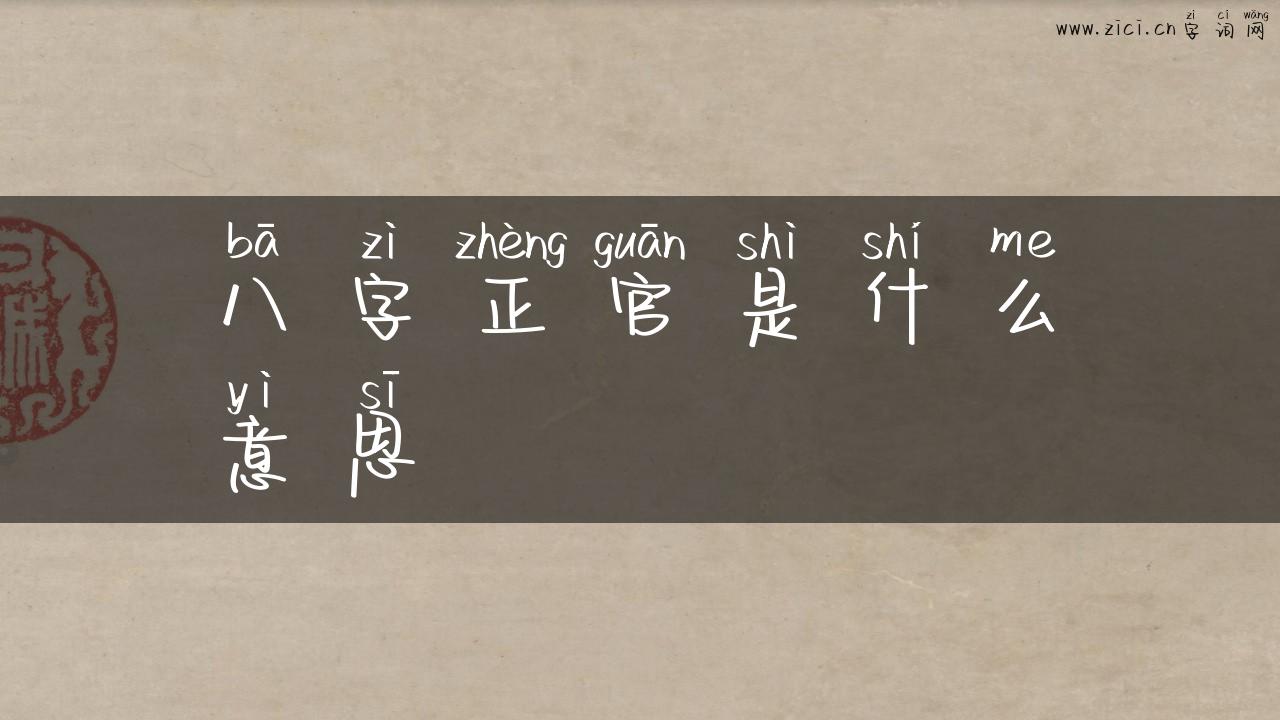 zì cí wǎng
www.zici.cn 字词网
bā zì zhèng guān shì shí me
八字正官是什么
yì sī
意思